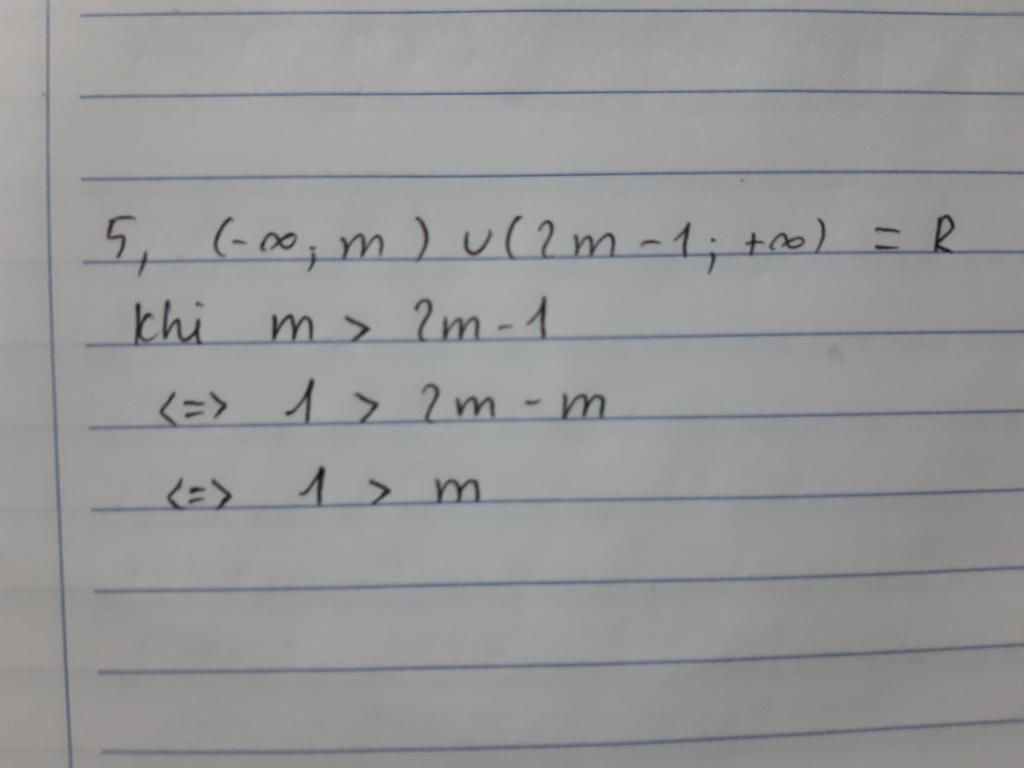 5, (-∞; m) ∪ (2m - 1; +∞) = R
khi m > 2m - 1
<=> 1 > 2m - m
<=> 1 > m